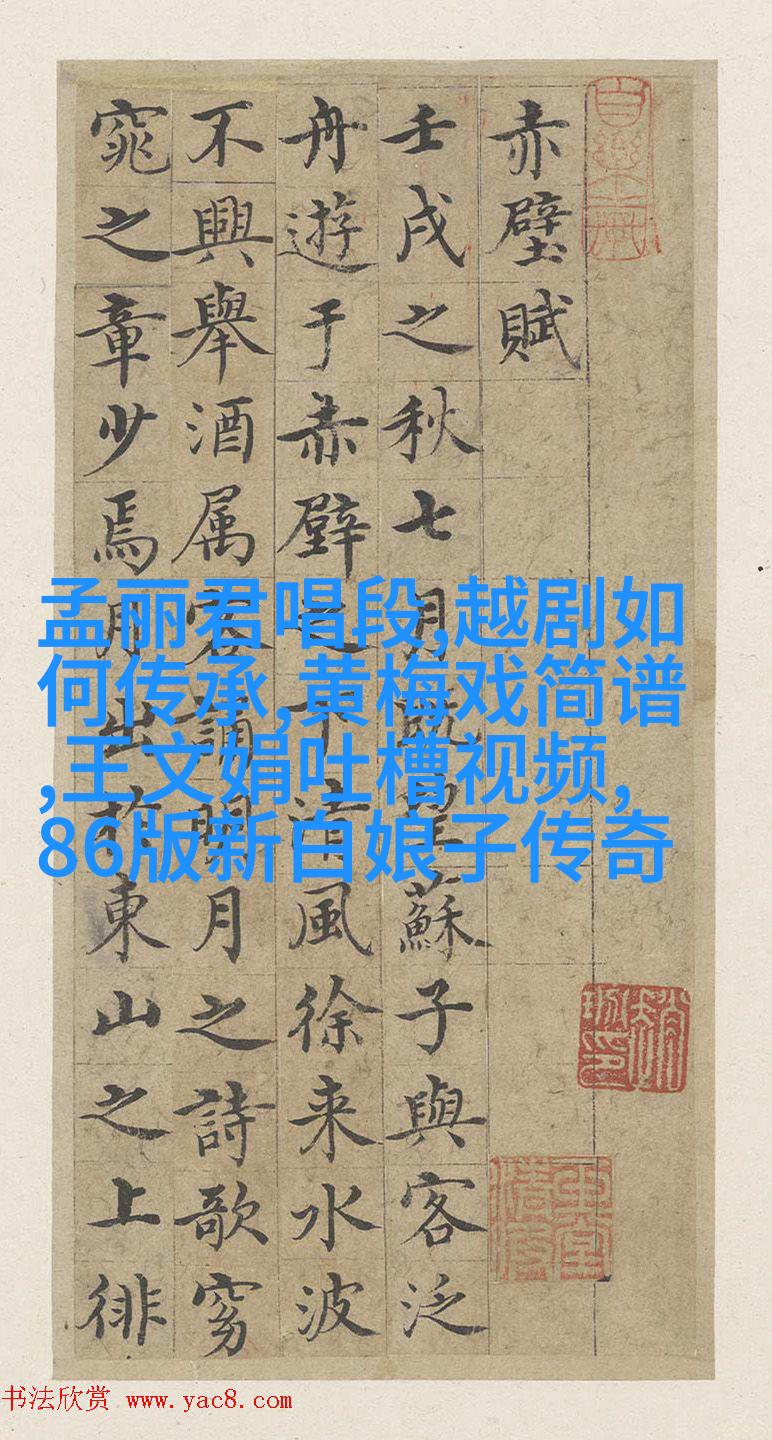 赤壁賦
壬戌之秋七月既望蘇子與客泛
舟遊于赤壁之下清風徐来水波
不興舉酒属客誦明月之詩歌窈
窕之章少焉月出於東山之上徘
孟丽君唱段,越剧如
何传承,黄梅戏简谱
,王文娟吐槽视频,
86版新白娘子传奇
书法欣赏 www.yac8.com